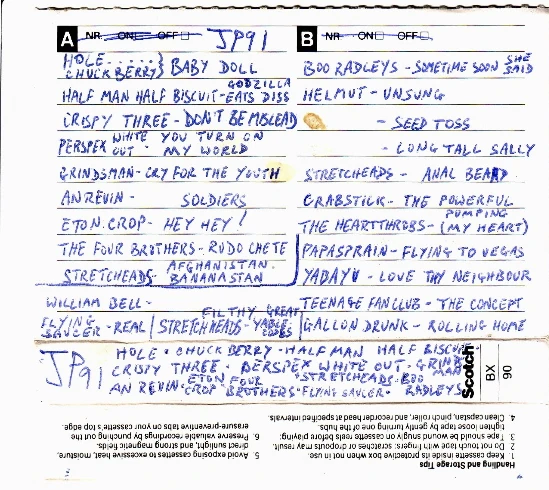 A NR. ON OFF JP91
HOLE.....}
CHUCK BERRY} BABY DOLL
GODZILLA
HALF MAN HALF BISCUIT-EATS DISS
CRISPY THREE - DON'T BE MBLEAD
PERSPEX WHITE OUT - YOU TURN ON MY WORLD
GRINDSMAN - CRY FOR THE YOUTH
AN REVIN - SOLDIERS
ETON CROP - HEY HEY!
THE FOUR BROTHERS - RUDO CHETE
STRETCHEADS - AFGHANISTAN. BANANASTAN
WILLIAM BELL -
FLYING SAUCER - REAL
STRETCHEADS - FILTHY GREAT YABLE
B NR. ON OFF
BOO RADLEYS - SOMETIME SOON SHE SAID
HELMUT - UNSUNG
- SEED TOSS
- LONG TALL SALLY
STRETCHEADS - ANAL BEARD
CRABSTICK - THE POWERFUL
THE HEARTTHROBS - PUMPING (MY HEART)
PAPASPRAIN - FLYING TO VEGAS
YABAYU - LOVE THY NEIGHBOUR
TEENAGE FANCLUB - THE CONCEPT
GALLON DRUNK - ROLLING HOME
JP91
HOLE · CHUCK BERRY · HALF MAN HALF BISCUIT
CRISPY THREE · PERSPEX WHITE OUT · GRINDSMAN
AN REVIN · ETON CROP · FOUR BROTHERS · STRETCHEADS · FLYING SAUCER · BOO RADLEYS
Scotch
BX
90
Handling and Storage Tips
1. Keep cassette inside its protective box when not in use.
2. Do not touch tape with fingers: scratches or dropouts may result.
3. Tape should be wound snugly on cassette reels before playing:
tighten loose tape by gently turning one of the hubs.
4. Clean capstan, pinch roller, and recorder head at specified intervals.
5. Avoid exposing cassettes to excessive heat, moisture,
direct sunlight, and strong magnetic fields.
6. Preserve valuable recordings by punching out the
erasure-prevention tabs on your cassette's top edge.